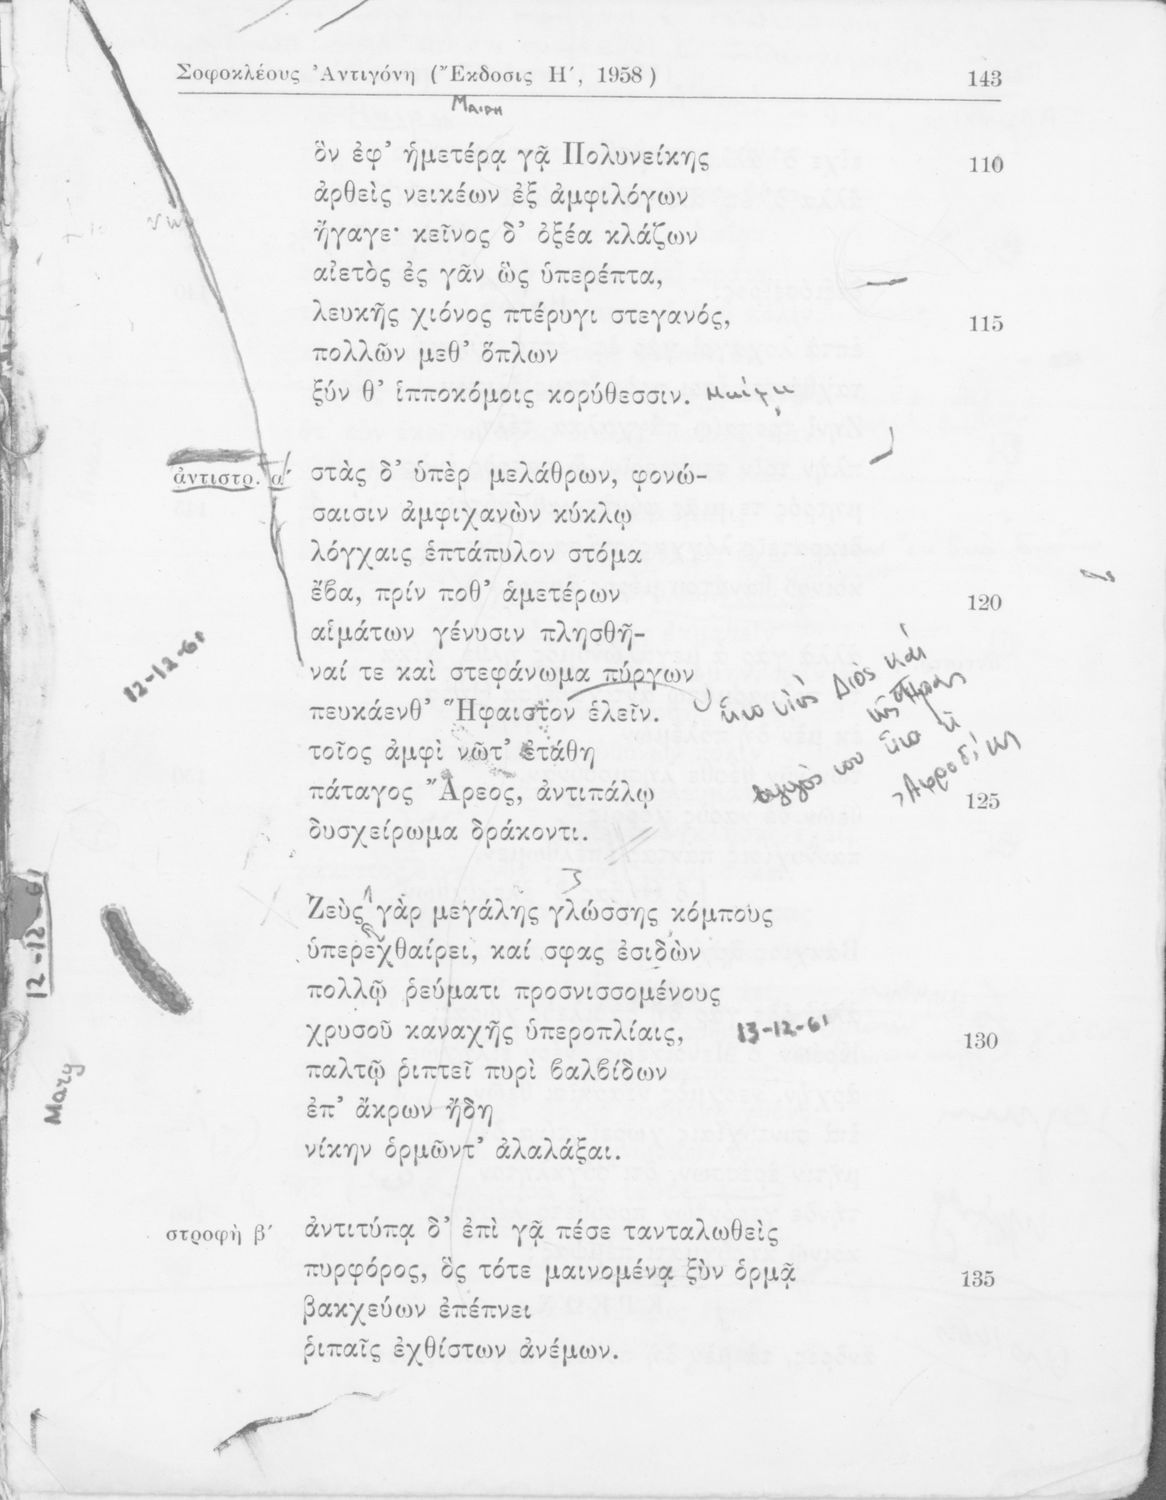 Σοφοκλέους Ἀντιγόνη (Ἔκδοσις Η΄, 1958) 143
Μαιρη
ὃν ἐφ’ ἡμετέρᾳ γᾷ Πολυνείκης 110
ἀρθεὶς νεικέων ἐξ ἀμφιλόγων
ἤγαγε· κεῖνος δ’ ὀξέα κλάζων
αἰετὸς ἐς γᾶν ὣς ὑπερέπτα,
λευκῆς χιόνος πτέρυγι στεγανός, 115
πολλῶν μεθ’ ὅπλων
ξύν θ’ ἱπποκόμοις κορύθεσσιν.
ἀντιστρ. α΄ στὰς δ’ ὑπὲρ μελάθρων, φονώ-
σαισιν ἀμφιχανὼν κύκλῳ
λόγχαις ἑπτάπυλον στόμα
ἔβα, πρίν ποθ’ ἁμετέρων 120
αἱμάτων γένυσιν πλησθῆ-
ναί τε καὶ στεφάνωμα πύργων
πευκάενθ’ Ἥφαιστον ἑλεῖν.
τοῖος ἀμφὶ νῶτ’ ἐτάθη
πάταγος Ἄρεος, ἀντιπάλῳ 125
δυσχείρωμα δράκοντι.
12-12-61
ἦτο υἱὸς Διὸς καὶ
τῆς Ἥρας
σύζυγός του ἦτο ἡ
Ἀφροδίτη
Ζεὺς γὰρ μεγάλης γλώσσης κόμπους
ὑπερεχθαίρει, καί σφας ἐσιδὼν
πολλῷ ῥεύματι προσνισσομένους
χρυσοῦ καναχῆς ὑπεροπλίαις, 130
13-12-61
παλτῷ ῥιπτεῖ πυρὶ βαλβίδων
ἐπ’ ἄκρων ἤδη
νίκην ὁρμῶντ’ ἀλαλάξαι.
12-12-61
Mary
στροφὴ β΄ ἀντιτύπᾳ δ’ ἐπὶ γᾷ πέσε τανταλωθεὶς
πυρφόρος, ὃς τότε μαινομένᾳ ξὺν ὁρμᾷ 135
βακχεύων ἐπέπνει
ῥιπαῖς ἐχθίστων ἀνέμων.